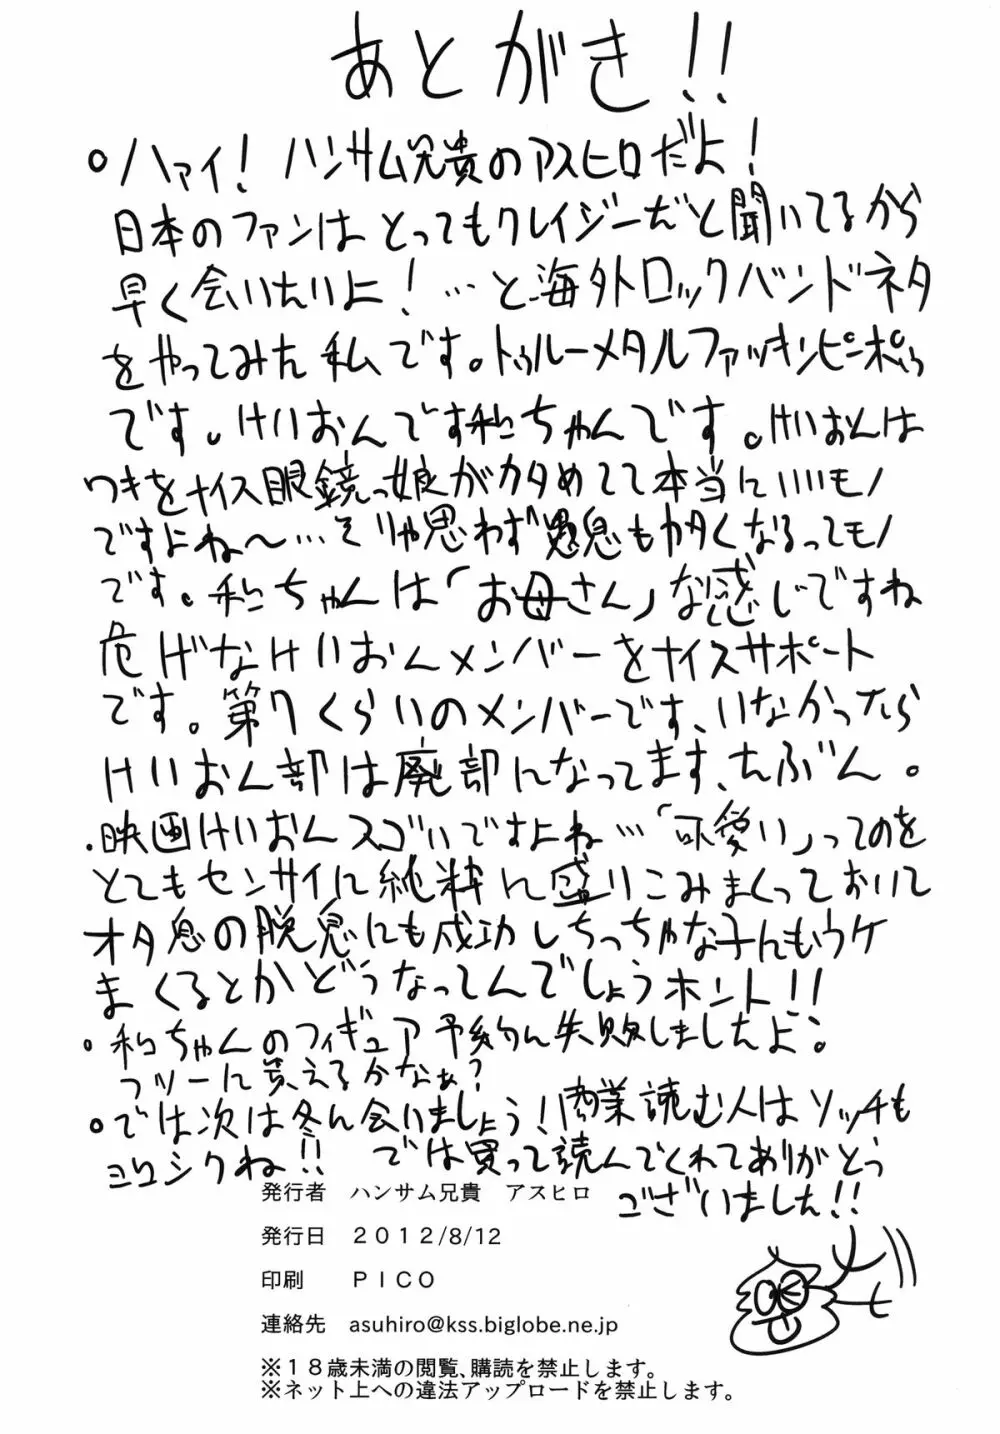 あとがき!!
。ハァイ!ハンサム兄貴のアスヒロだよ!
日本のファンはとってもクレイジーだと聞いてるから
早く会いたいよ!…と海外ロックバンドネタ
をやってみた私です。トゥルーメタルファッキンピーポゥ
です。けいおんです和ちゃんです。けいおんは
ワキをナイス眼鏡っ娘がカタめてて本当にいいモノ
ですよね〜…そりゃ思わず愚息もカタくなるってモノ
です。和ちゃんは「お母さん」な感じですね
危げなけいおんメンバーをナイスサポート
です。第7くらいのメンバーです、いなかったら
けいおん部は廃部になってます、たぶん。
.映画けいおんスゴいですよね…「可愛い」ってのを
とてもセンサイに純粋に盛りこみまくっておいて
オタ息の脱臭にも成功しちっちゃな子にもウケ
まくるとかどうなってんでしょうホント!!
。和ちゃんのフィギュア予約に失敗しましたよ。
フツーに買えるかなぁ?
。では次は冬に会いましょう!商業読む人はソッチも
ヨロシクね!!では買って読んでくれてありがとう
ございました!!
発行者 ハンサム兄貴 アスヒロ
発行日 2012/8/12
印刷 PICO
連絡先 asuhiro@kss.biglobe.ne.jp
※18歳未満の閲覧、購読を禁止します。
※ネット上への違法アップロードを禁止します。